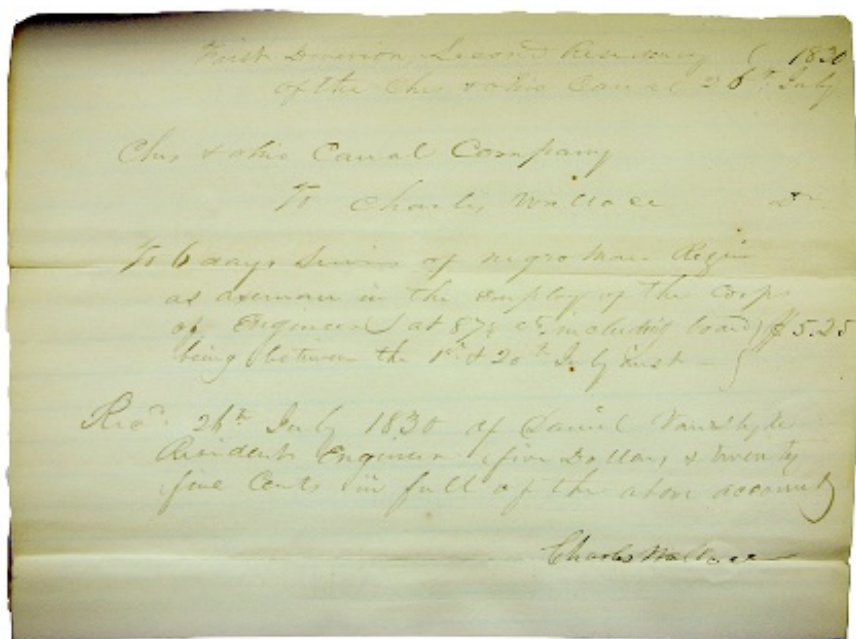 First Division Second Residency { 1830
of the Ches & ohio Canal 26th July
Ches & ohio Canal Company
To Charles Wallace Dr.
To 6 days Service of negro Man Regin
as axeman in the employ of the Corps
of Engineers at 87½ cts including board } $5.25
being between the 1st & 20th July inst — }
Recd. 26th July 1830 of Daniel Vanslyke
Resident Engineer five Dollars & twenty
five Cents in full of the above account
Charles Wallace